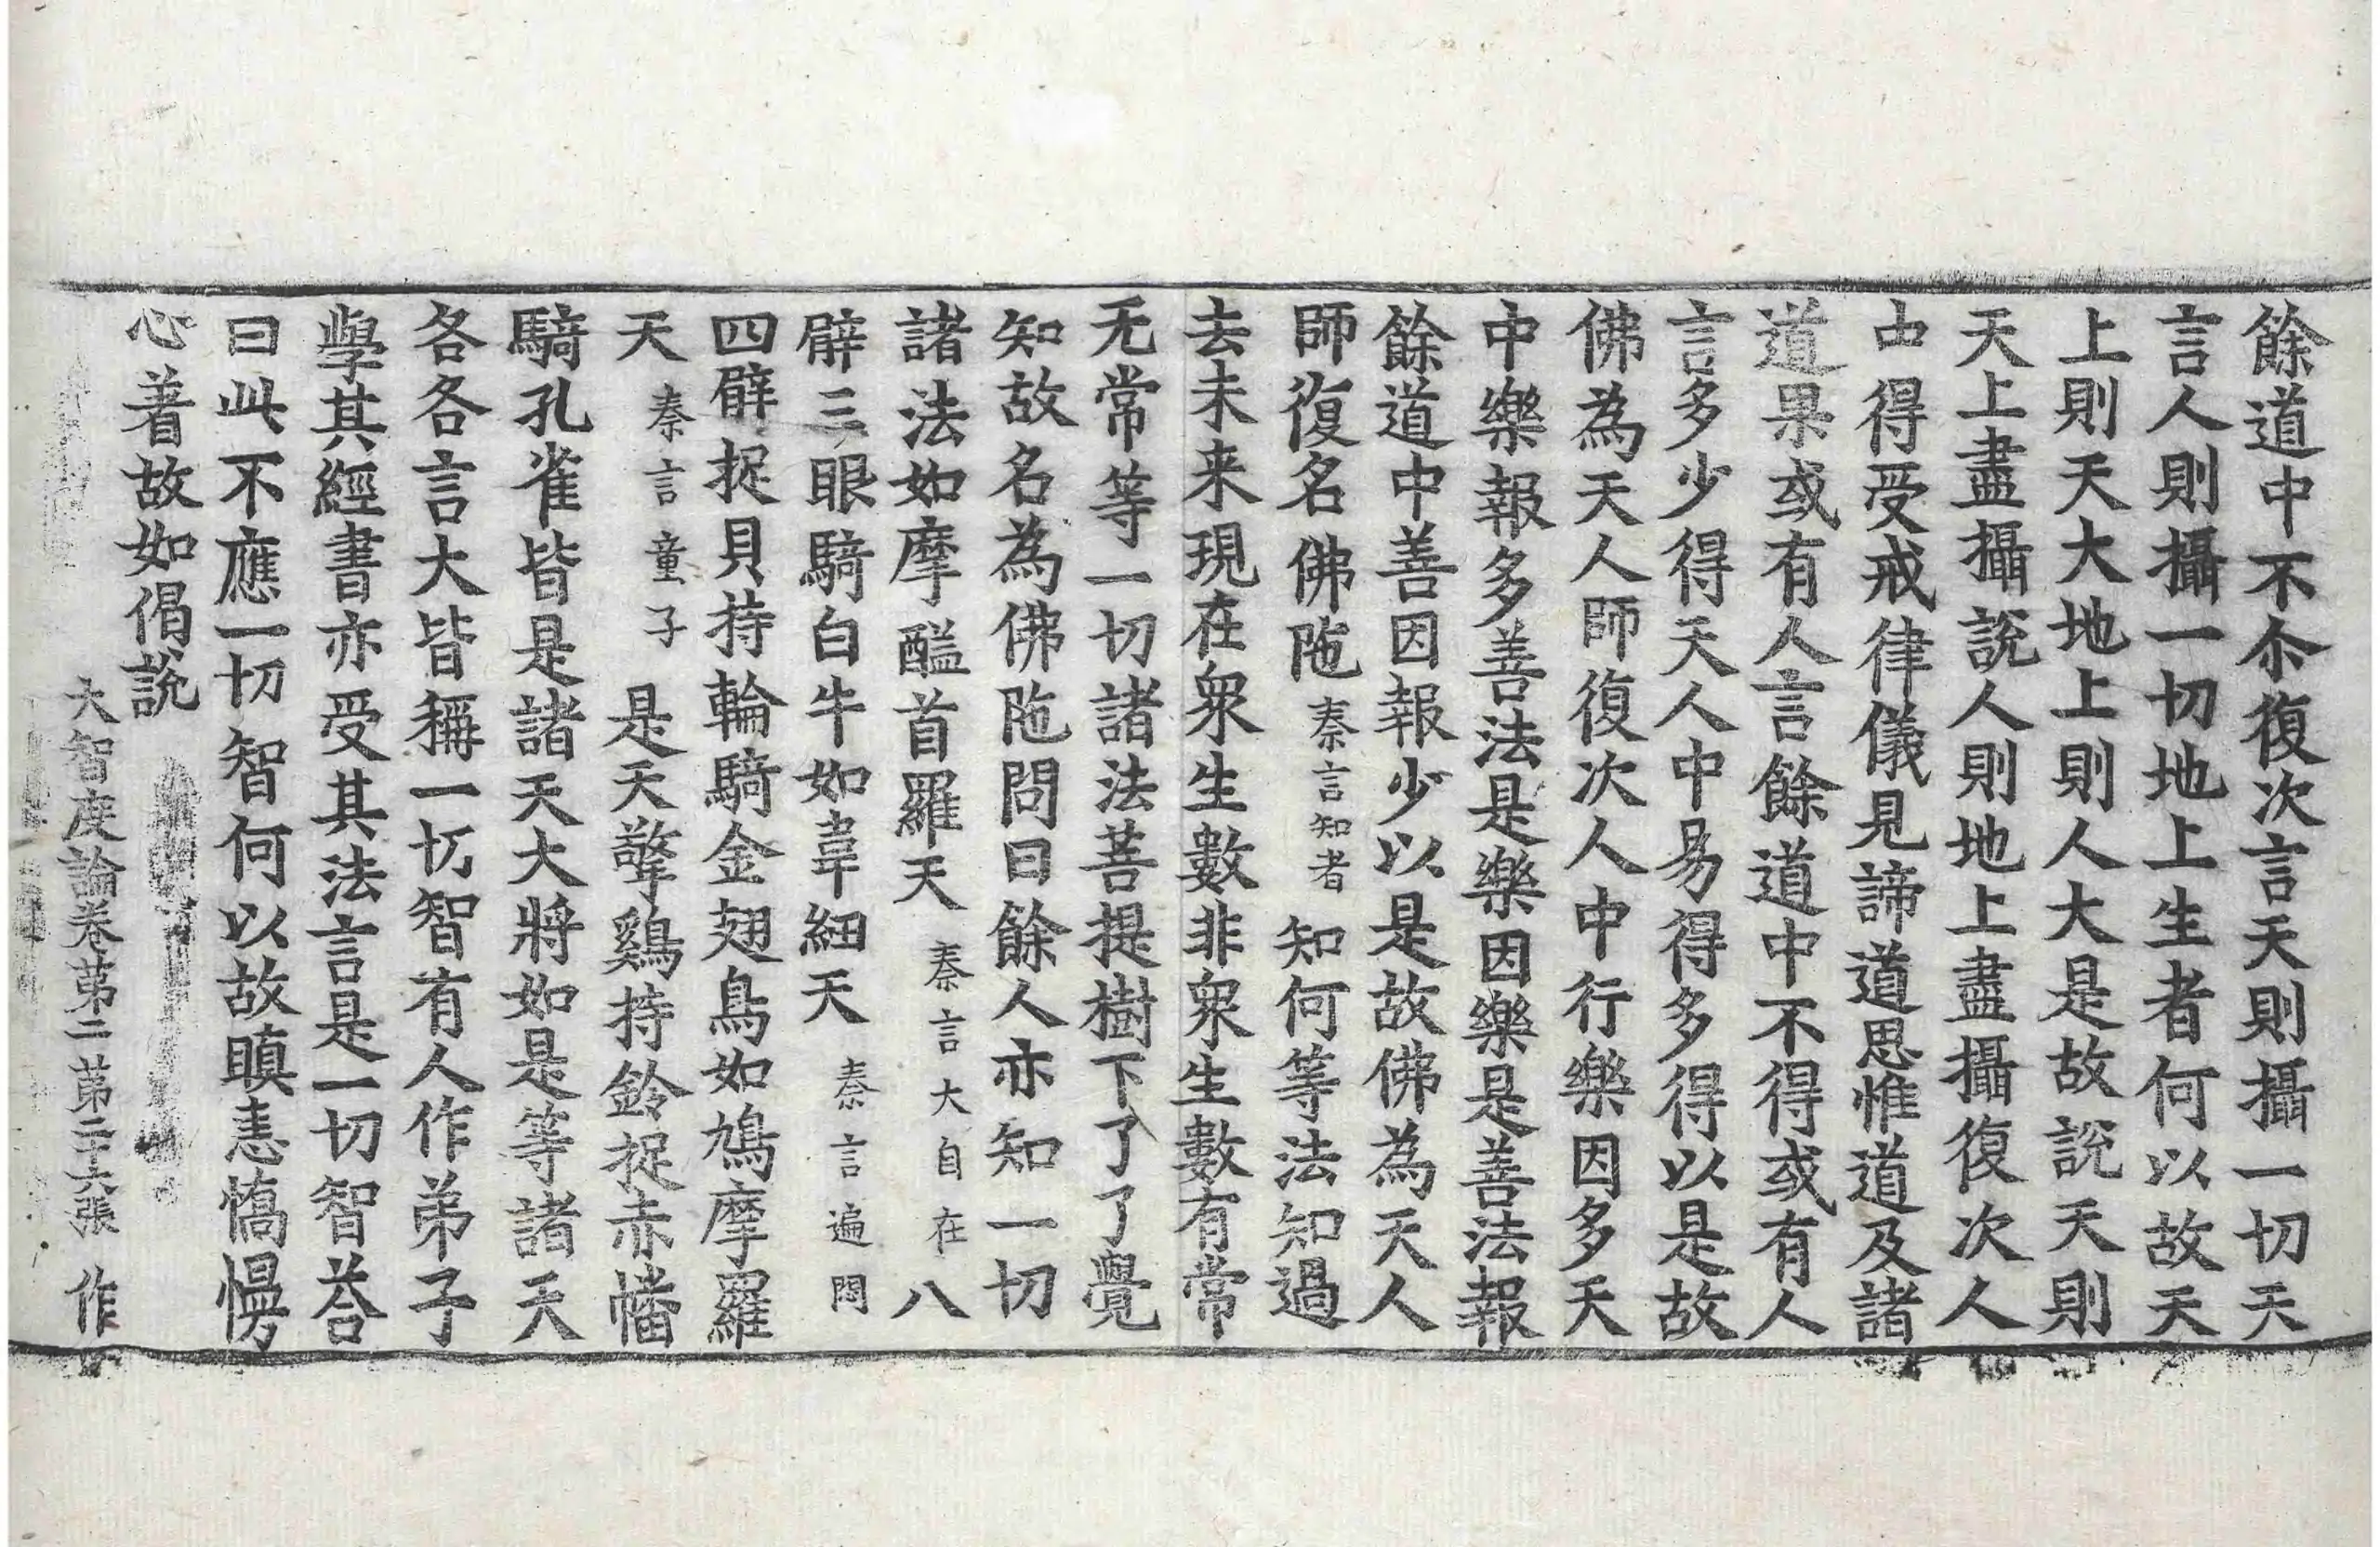 餘道中不尒復次言天則攝一切天
言人則攝一切地上生者何以故天
上則天大地上則人大是故說天則
天上盡攝說人則地上盡攝復次人
中得受戒律儀見諦道思惟道及諸
道果或有人言餘道中不得或有人
言多少得天人中易得多得以是故
佛為天人師復次人中行樂因多天
中樂報多善法是樂因樂是善法報
餘道中善因報少以是故佛為天人
師復名佛陁秦言知者知何等法知過
去未来現在衆生數非衆生數有常
无常等一切諸法菩提樹下了了覺
知故名為佛陁問曰餘人亦知一切
諸法如摩醯首羅天秦言大自在八
臂三眼騎白牛如韋紐天秦言遍悶
四臂捉貝持輪騎金翅鳥如鳩摩羅
天秦言童子是天擎鷄持鈴捉赤幡
騎孔雀皆是諸天大將如是等諸天
各各言大皆稱一切智有人作弟子
學其經書亦受其法言是一切智荅
曰此不應一切智何以故瞋恚憍慢
心着故如偈說
大智度論卷第二 第二十六張 作